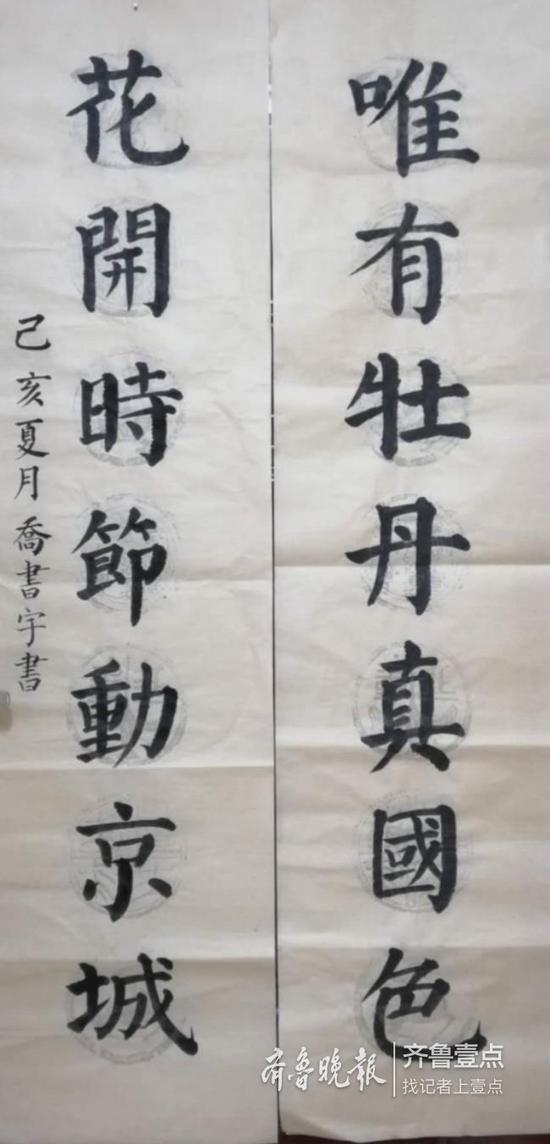 唯有牡丹真國色
花開時節動京城
己亥夏月喬書宇書
齐鲁晚报
齐鲁壹点
找记者上壹点